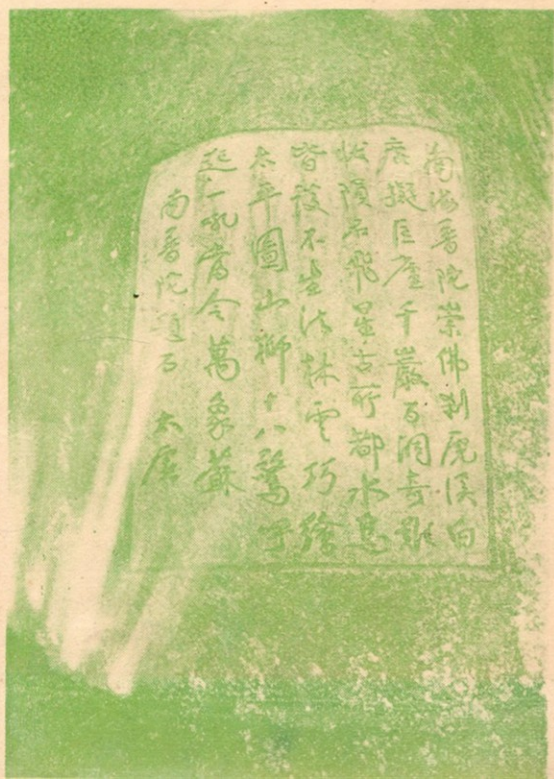 南海普陀崇佛剎虎溪白
鹿擬匡廬千巖百洞奇難
狀隕石飛星古所都水鳥
皆談不生法林雲巧繪
太平圖山獅十八驚呼
起一吼當令萬象蘇
南普陀題石 太虛